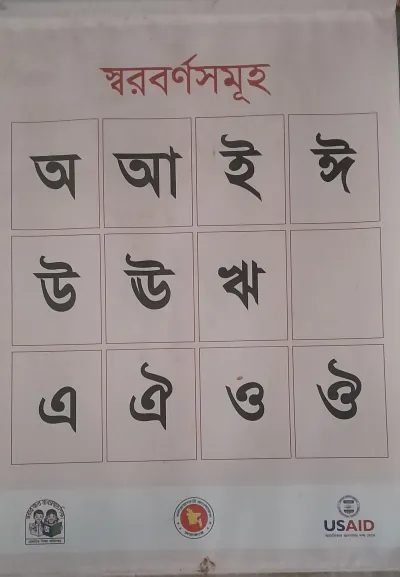 স্বরবর্ণসমূহ
অ আ ই ঈ
উ ঊ ঋ
এ ঐ ও ঔ
USAID